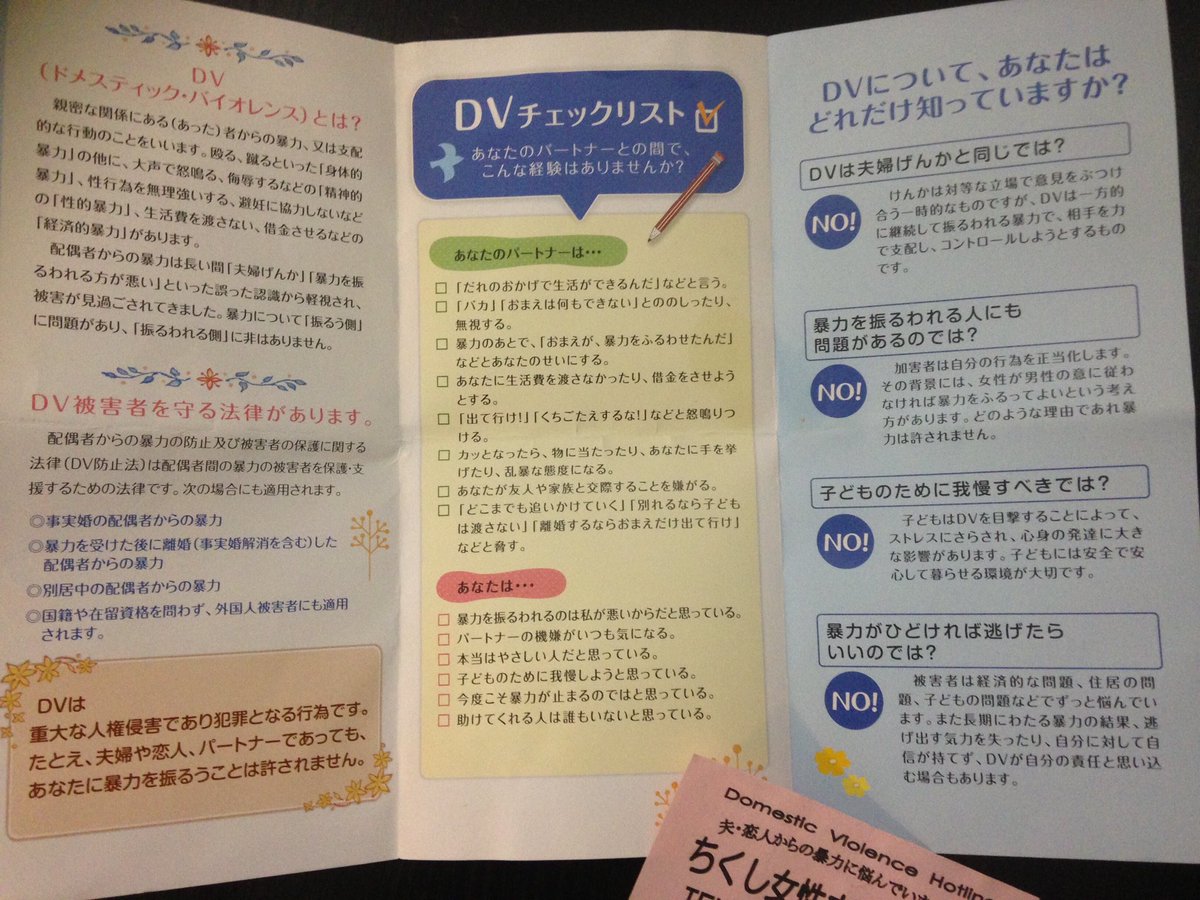 DV
(ドメスティック・バイオレンス)とは?
親密な関係にある(あった)者からの暴力、又は支配
的な行動のことをいいます。殴る、蹴るといった「身体的
暴力」の他に、大声で怒鳴る、侮辱するなどの「精神的
暴力」、性行為を無理強いする、避妊に協力しないなど
の「性的暴力」、生活費を渡さない、借金させるなどの
「経済的暴力」があります。
配偶者からの暴力は長い間「夫婦げんか」「暴力を振
るわれる方が悪い」といった誤った認識から軽視され、
被害が見過ごされてきました。暴力について「振るう側」
に問題があり、「振るわれる側」に非はありません。
DV被害者を守る法律があります。
配偶者からの暴力の防止及び被害者の保護に関する
法律(DV防止法)は配偶者間の暴力の被害者を保護・支
援するための法律です。次の場合にも適用されます。
◎事実婚の配偶者からの暴力
◎暴力を受けた後に離婚(事実婚解消を含む)した
配偶者からの暴力
◎別居中の配偶者からの暴力
◎国籍や在留資格を問わず、外国人被害者にも適用
されます。
DVは
重大な人権侵害であり犯罪となる行為です。
たとえ、夫婦や恋人、パートナーであっても、
あなたに暴力を振るうことは許されません。
DVチェックリスト
あなたのパートナーとの間で、
こんな経験はありませんか?
あなたのパートナーは…
□「だれのおかげで生活ができるんだ」などと言う。
□「バカ」「おまえは何もできない」とののしったり、
無視する。
□ 暴力のあとで、「おまえが、暴力をふるわせたんだ」
などとあなたのせいにする。
□ あなたに生活費を渡さなかったり、借金をさせよう
とする。
□「出て行け!」「くちごたえするな!」などと怒鳴りつ
ける。
□ カッとなったら、物に当たったり、あなたに手を挙
げたり、乱暴な態度になる。
□ あなたが友人や家族と交際することを嫌がる。
□「どこまでも追いかけていく」「別れるなら子ども
は渡さない」「離婚するならおまえだけ出て行け」
などと脅す。
あなたは…
□ 暴力を振るわれるのは私が悪いからだと思っている。
□ パートナーの機嫌がいつも気になる。
□ 本当はやさしい人だと思っている。
□ 子どものために我慢しようと思っている。
□ 今度こそ暴力が止まるのではと思っている。
□ 助けてくれる人は誰もいないと思っている。
DVについて、あなたは
どれだけ知っていますか?
DVは夫婦げんかと同じでは?
NO!
けんかは対等な立場で意見をぶつけ
合う一時的なものですが、DVは一方的
に継続して振るわれる暴力で、相手を力
で支配し、コントロールしようとするもの
です。
暴力を振るわれる人にも
問題があるのでは?
NO!
加害者は自分の行為を正当化します。
その背景には、女性が男性の意に従わ
なければ暴力をふるってよいという考え
方があります。どのような理由であれ暴
力は許されません。
子どものために我慢すべきでは?
NO!
子どもはDVを目撃することによって、
ストレスにさらされ、心身の発達に大き
な影響があります。子どもには安全で安
心して暮らせる環境が大切です。
暴力がひどければ逃げたら
いいのでは?
NO!
被害者は経済的な問題、住居の問
題、子どもの問題などでずっと悩んでい
ます。また長期にわたる暴力の結果、逃
げ出す気力を失ったり、自分に対して自
信が持てず、DVが自分の責任と思い込
む場合もあります。
Domestic Violence Hotline
夫・恋人からの暴力に悩んでい

ちくし女性